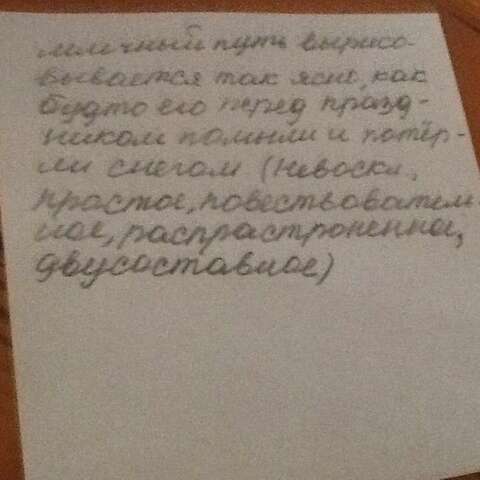 млечный путь вырисо-
вывается так ясно, как
будто его перед празд-
ником помыли и потёр-
ли снегом (Невоскл.,
простое, повествователь-
ное, распрастроненное,
двусоставное)